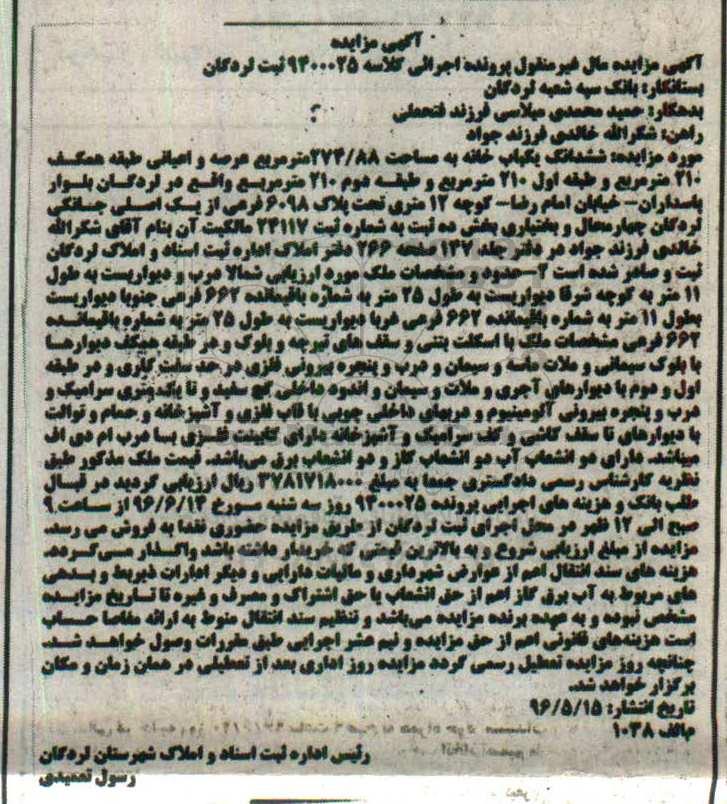 آگهی مزایده
آگهی مزایده مال غیر منقول پرونده اجرائی کلاسه ۹۴۰۰۰۲۵ ثبت لردگان
بستانکار: بانک سپه شعبه لردگان
بدهکار: حمید محمدی میلاسی فرزند فتحعلی
راهن: شکرالله خالدی فرزند جواد
مورد مزایده: ششدانگ یکباب خانه به مساحت ۲۷۴/۸۸مترمربع عرصه و اعیانی طبقه همکف
۲۱۰ مترمربع و طبقه اول ۲۱۰ مترمربع و طبقه دوم ۲۱۰ مترمربع واقع در لردگان بلوار
پاسداران– خیابان امام رضا– کوچه ۱۲ متری تحت پلاک ۶۰۹۸ فرعی از یک اصلی جنانگی
لردگان چهارمحال و بختیاری بخش ده ثبت به شماره ثبت ۲۴۱۱۷ مالکیت آن بنام آقای شکرالله
خالدی فرزند جواد در دفتر جلد ۱۴۷ صفحه ۲۶۶ دفتر املاک اداره ثبت اسناد و املاک لردگان
ثبت و صادر شده است ۲–حدود و مشخصات ملک مورد ارزیابی شمالا درب و دیواریست به طول
۱۱ متر به کوچه شرقا دیواریست به طول ۲۵ متر به شماره باقیمانده ۶۶۲ فرعی جنوبا دیواریست
بطول ۱۱ متر به شماره باقیمانده ۶۶۲ فرعی غربا دیواریست به طول ۲۵ متر به شماره باقیمانده
۶۶۲ فرعی مشخصات ملک با اسکلت بتنی و سقف های تیرچه و بلوک و در طبقه همکف دیوارها
با بلوک سیمانی و ملات ماسه و سیمان و درب و پنجره بیرونی فلزی در حد سفت کاری و در طبقه
اول و دوم با دیوارهای آجری و ملات و سیمان و اندود داخلی گچ سفید و تا یک‌متری سرامیک و
درب و پنجره بیرونی آلومینیوم و دربهای داخلی چوبی با قاب فلزی و آشپزخانه و حمام و توالت
با دیوارهای تا سقف کاشی و کف سرامیک و آشپزخانه دارای کابینت فلزی با درب ام دی اف
میباشد. دارای دو انشعاب آب دو انشعاب گاز و دو انشعاب برق می‌باشد. قیمت ملک مذکور طبق
نظریه کارشناس رسمی دادگستری جمعا به مبلغ ۳۷۸۱۷۱۸۰۰۰ ریال ارزیابی گردید در قبال
طلب بانک و هزینه های اجرایی پرونده ۹۴۰۰۰۲۵ روز سه شنبه مورخ ۹۶/۶/۱۴ از ساعت۹
صبح الی ۱۲ ظهر در محل اجرای ثبت لردگان از طریق مزایده حضوری نقدا به فروش می رسد.
مزایده از مبلغ ارزیابی شروع و به بالاترین قیمتی که خریدار داشته باشد واگذار می‌گردد.
هزینه های سند انتقال اعم از عوارض شهرداری و مالیات دارایی و دیگر ادارات ذیربط و بدهی
های مربوط به آب برق گاز اعم از حق انشعاب یا حق اشتراک و مصرف و غیره تا تاریخ مزایده
مشخص نبوده و به عهده برنده مزایده می‌باشد و تنظیم سند انتقال منوط به ارائه مفاصا حساب
است هزینه‌های قانونی اعم از حق مزایده و نیم عشر اجرایی طبق مقررات وصول خواهد شد.
چنانچه روز مزایده تعطیل رسمی گردد مزایده روز اداری بعد از تعطیلی در همان زمان و مکان
برگزار خواهد شد.
تاریخ انتشار: ۹۶/۵/۱۵
م‌الف ۱۰۳۸
رئیس اداره ثبت اسناد و املاک شهرستان لردگان
رسول تعمیدی